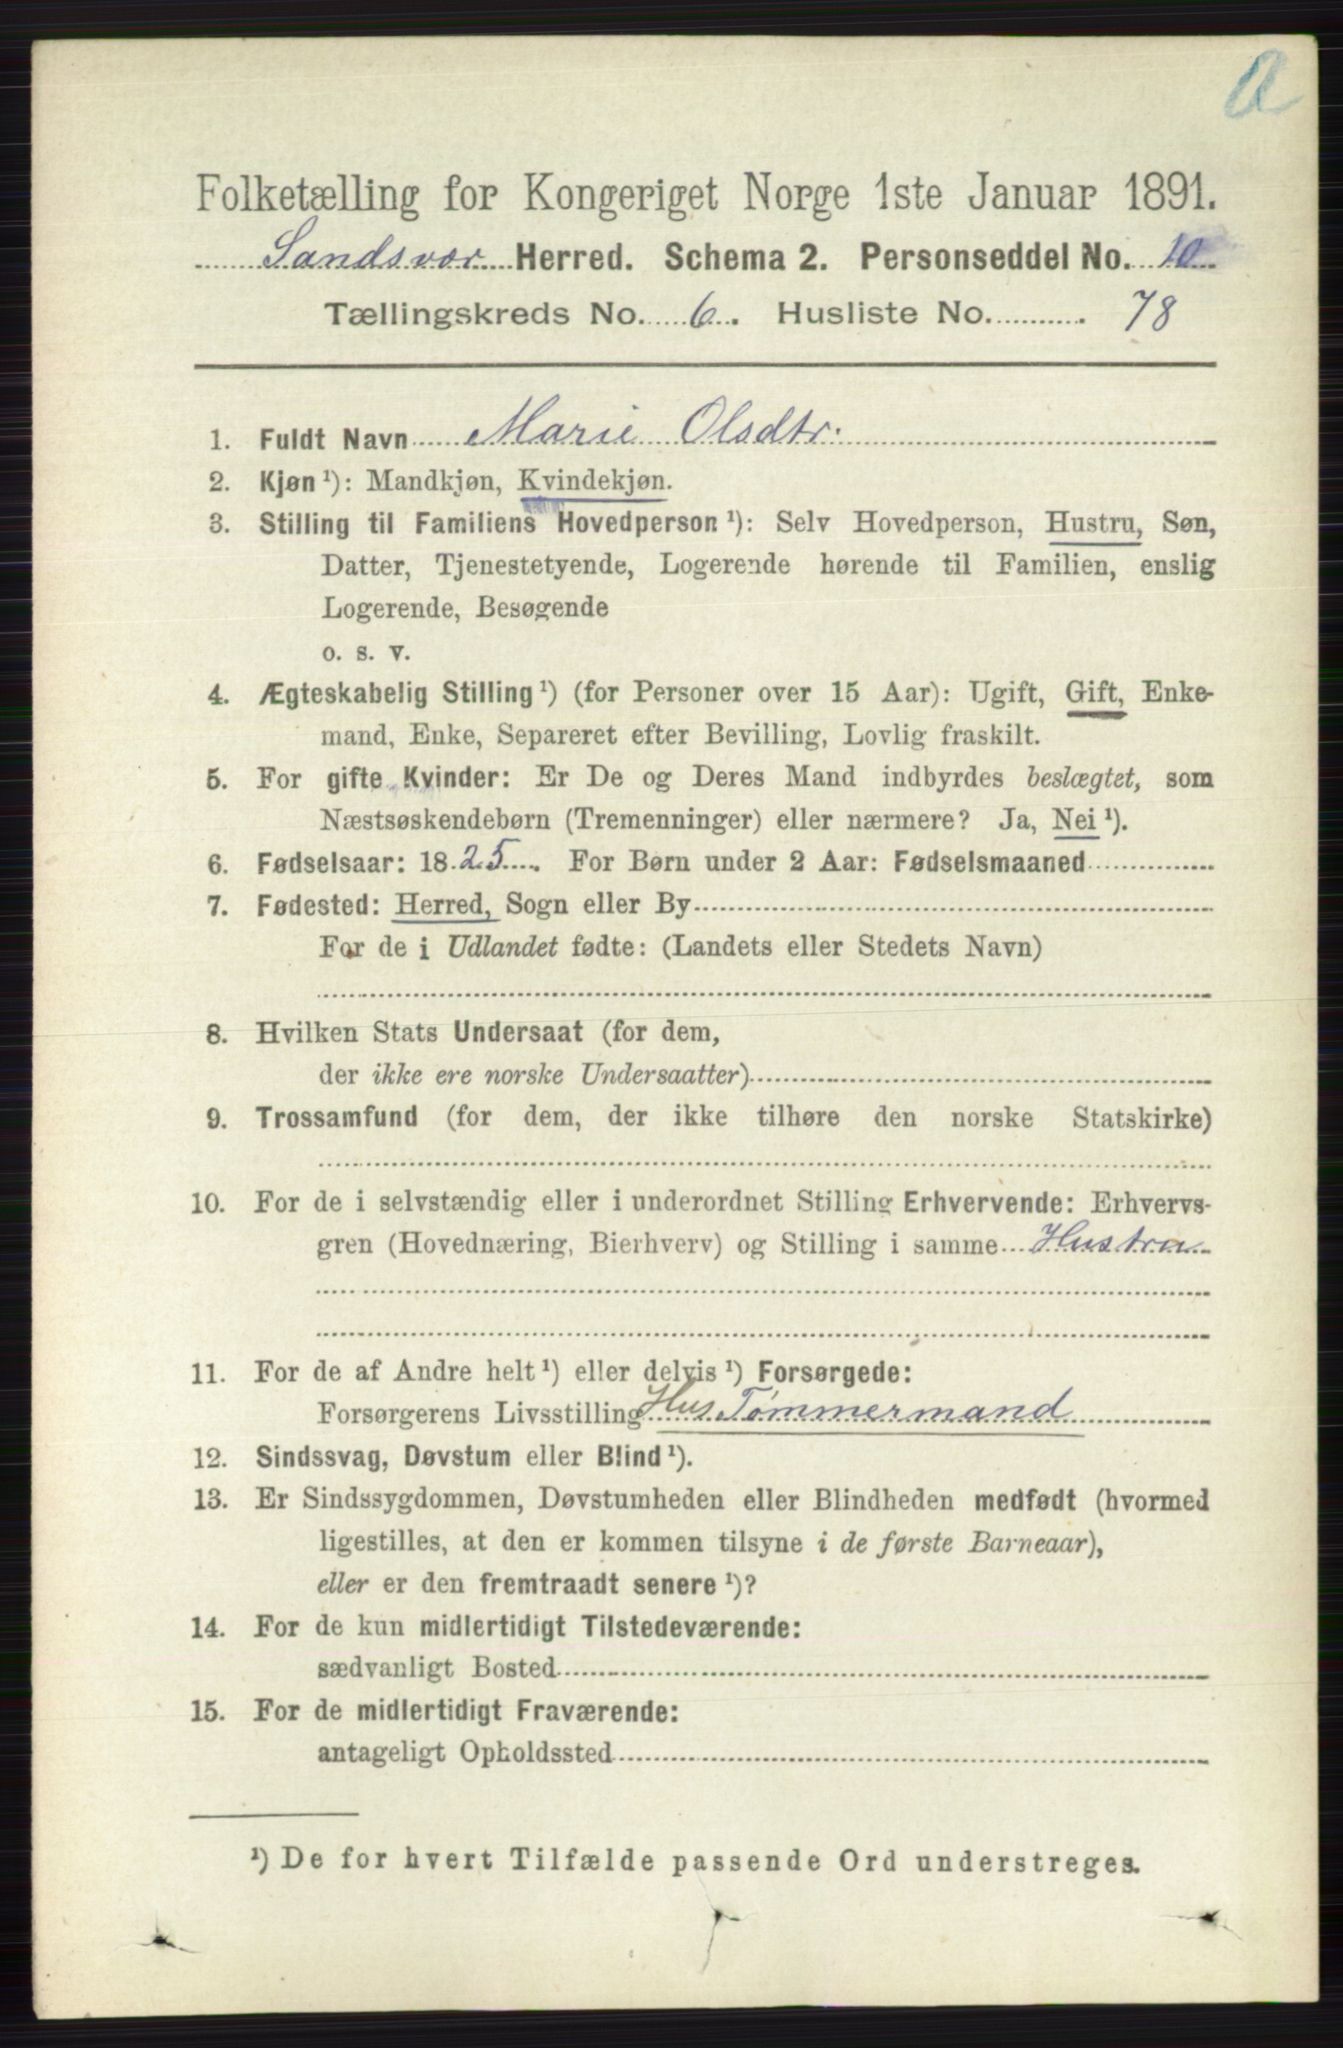 a
Folketælling for Kongeriget Norge 1ste Januar 1891.
Sandsvær Herred. Schema 2. Personseddel No. 10
Tællingskreds No. 6. Husliste No. 78
1. Fuldt Navn Marie Olsdtr.
2. Kjøn ¹): Mandkjøn, Kvindekjøn.
3. Stilling til Familiens Hovedperson ¹): Selv Hovedperson, Hustru, Søn,
Datter, Tjenestetyende, Logerende hørende til Familien, enslig
Logerende, Besøgende
o. s. v.
4. Ægteskabelig Stilling ¹) (for Personer over 15 Aar): Ugift, Gift, Enke-
mand, Enke, Separeret efter Bevilling, Lovlig fraskilt.
5. For gifte Kvinder: Er De og Deres Mand indbyrdes beslægtet, som
Næstsøskendebørn (Tremenninger) eller nærmere? Ja, Nei ¹).
6. Fødselsaar: 1825. For Børn under 2 Aar: Fødselsmaaned
7. Fødested: Herred, Sogn eller By
For de i Udlandet fødte: (Landets eller Stedets Navn)
8. Hvilken Stats Undersaat (for dem,
der ikke ere norske Undersaatter)
9. Trossamfund (for dem, der ikke tilhøre den norske Statskirke)
10. For de i selvstændig eller i underordnet Stilling Erhvervende: Erhvervs-
gren (Hovednæring, Bierhverv) og Stilling i samme Hustru
11. For de af Andre helt ¹) eller delvis ¹) Forsørgede:
Forsørgerens Livsstilling Hus Tømmermand
12. Sindssvag, Døvstum eller Blind ¹).
13. Er Sindssygdommen, Døvstumheden eller Blindheden medfødt (hvormed
ligestilles, at den er kommen tilsyne i de første Barneaar),
eller er den fremtraadt senere ¹)?
14. For de kun midlertidigt Tilstedeværende:
sædvanligt Bosted
15. For de midlertidigt Fraværende:
antageligt Opholdssted
¹) De for hvert Tilfælde passende Ord understreges.